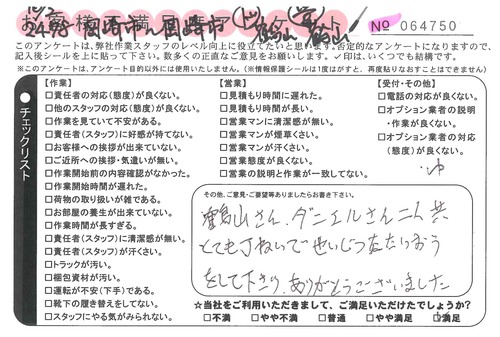 お客様満足アンケート
№ 064750
このアンケートは、弊社作業スタッフのレベル向上に役立てたいと思います。否定的なアンケートになりますので、
記入後シールを上に貼って下さい。数多くの正直なご意見をお願いします。✓印は、いくつでも結構です。
※このアンケートは、アンケート目的以外には使用いたしません。(※情報保護シールは1度はがすと、再度貼りなおすことはできません)
チェックリスト
【作業】
□責任者の対応(態度)が良くない。
□他のスタッフの対応(態度)が良くない。
□作業を見ていて不安がある。
□責任者(スタッフ)に好感が持てない。
□お客様への挨拶が出来ていない。
□ご近所への挨拶・気遣いが無い。
□作業開始前の内容確認がなかった。
□作業開始時間が遅れた。
□荷物の取り扱いが雑である。
□お部屋の養生が出来ていない。
□作業時間が長すぎる。
□責任者(スタッフ)に清潔感が無い。
□責任者(スタッフ)が汗くさい。
□トラックが汚い。
□梱包資材が汚い。
□運転が不安(下手)である。
□靴下の履き替えをしてない。
□スタッフにやる気がみられない。
【営業】
□見積もり時間に遅れた。
□見積もり時間が長い。
□営業マンに清潔感が無い。
□営業マンが煙草くさい。
□営業マンが汗くさい。
□営業態度が良くない。
□営業の説明と作業が一致してない。
【受付・その他】
□電話の対応が良くない。
□オプション業者の説明
・作業が良くない。
□オプション業者の対応
(態度)が良くない。
その他、ご意見・ご要望等ありましたらお書き下さい。
さん、ダニエルさん二人共
とても丁ねいでせいじつなたいおう
をして下さり、ありがとうございました
☆当社をご利用いただきまして、ご満足いただけたでしょうか?
□不満 □やや不満 □普通 □やや満足 □満足